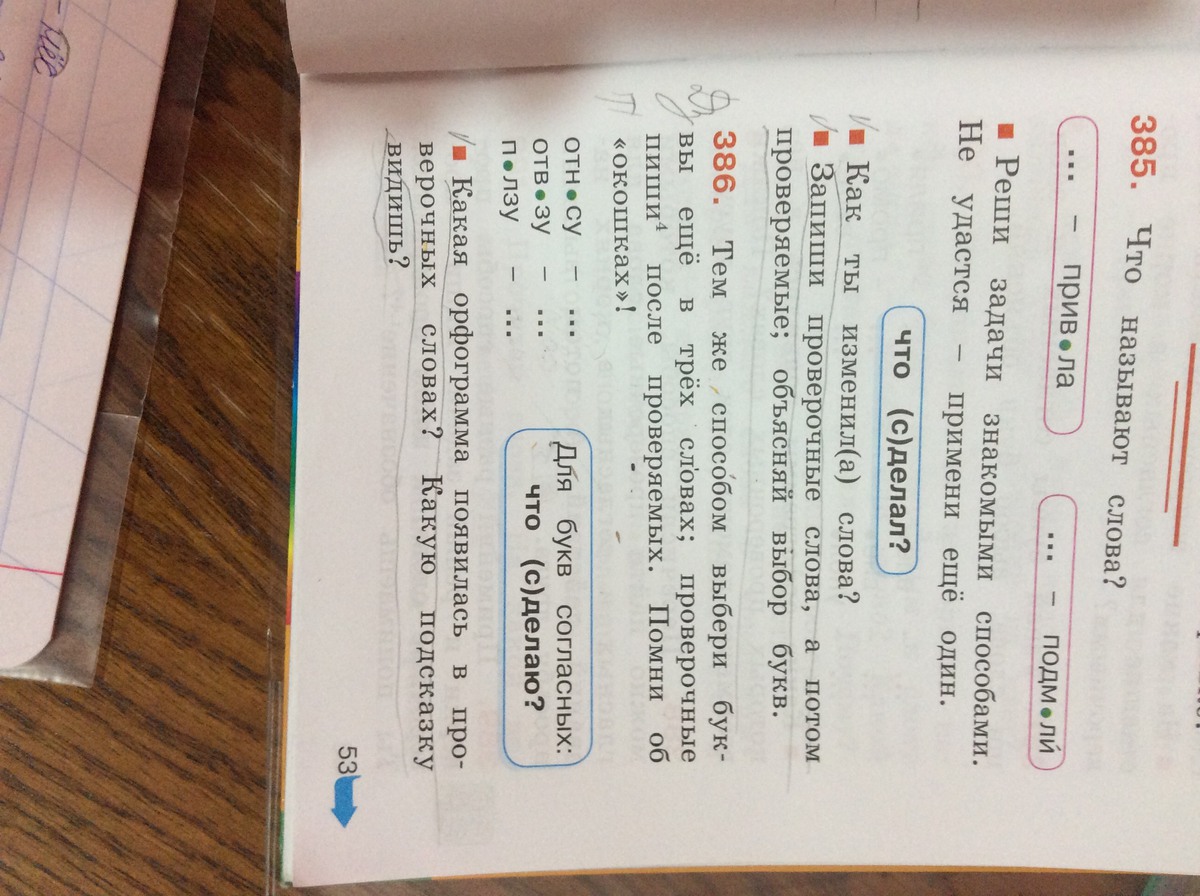 385. Что называют слова?
... – прив•ла ... – подм•ли́
■ Реши задачи знакомыми способами.
Не удастся – примени ещё один.
что (с)делал?
■ Как ты изменил(а) слова?
■ Запиши проверочные слова, а потом
проверяемые; объясняй выбор букв.
386. Тем же спосо́бом выбери бук-
вы ещё в трёх словах; проверочные
пиши⁴ после проверяемых. Помни об
«окошках»!
отн•су – ...
отв•зу – ...
п•лзу – ...
Для букв согласных:
что (с)делаю?
■ Какая орфограмма появилась в про-
верочных словах? Какую подсказку
видишь?
53